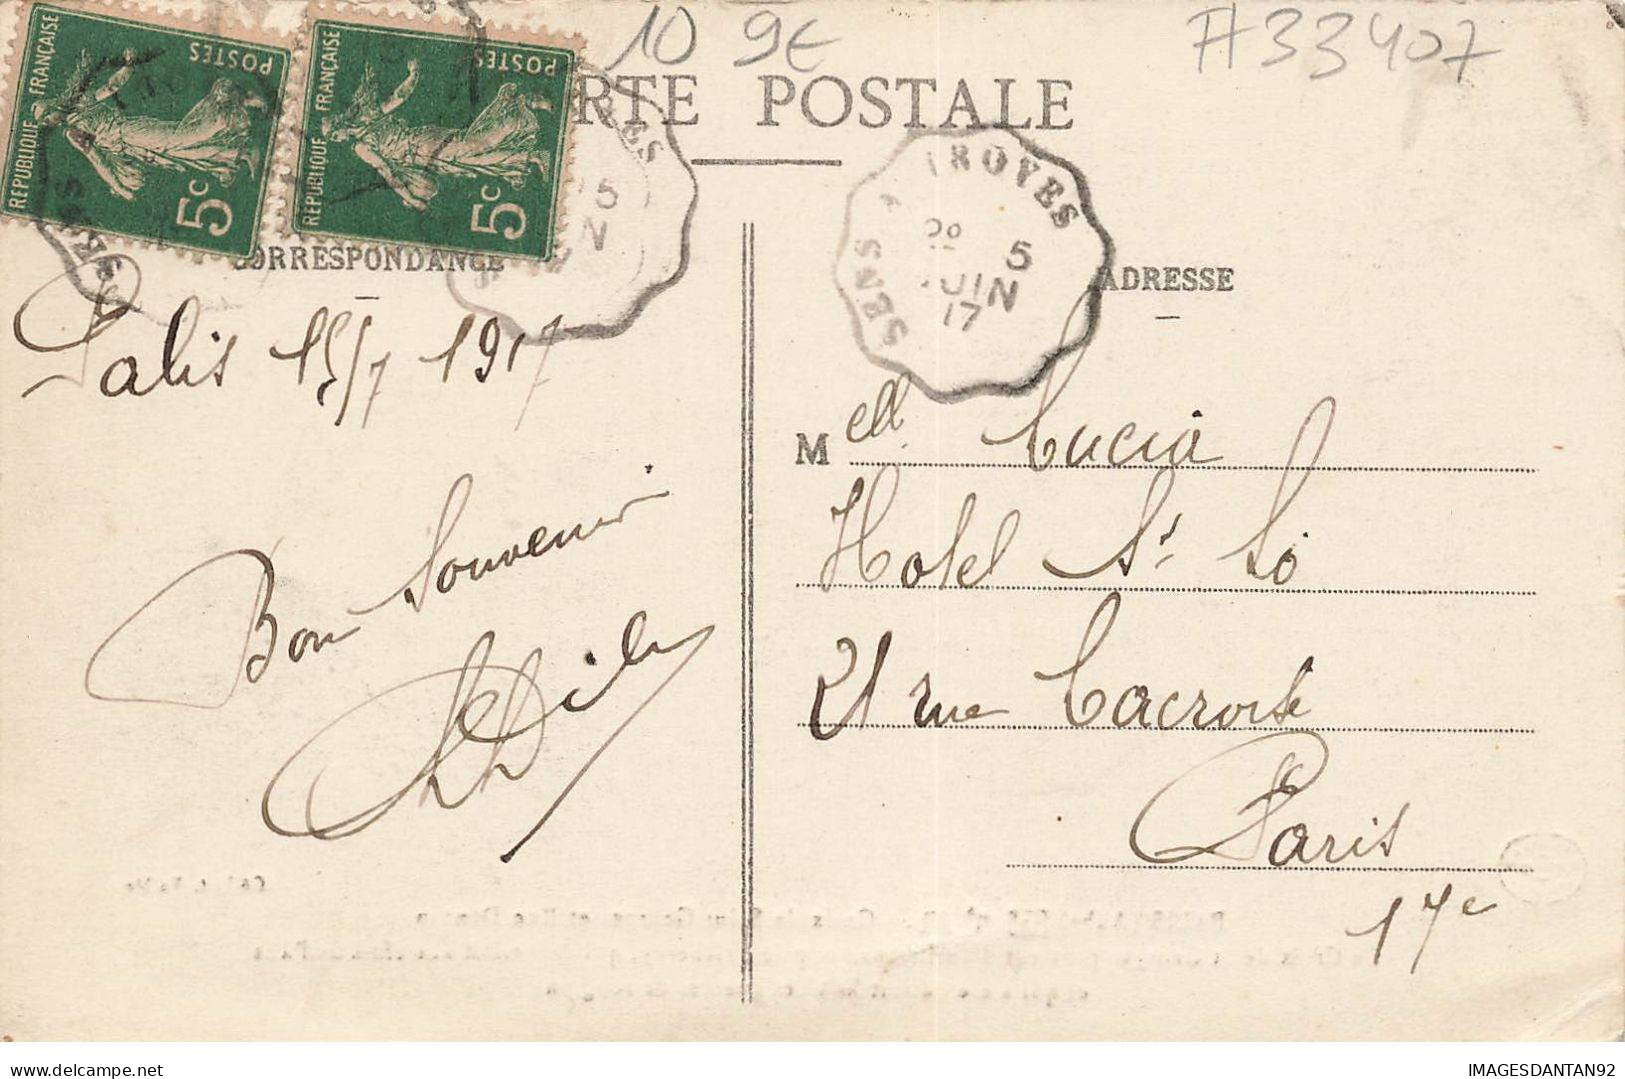 10 9€ A33407
REPUBLIQUE FRANÇAISE
POSTES
5c
REPUBLIQUE FRANÇAISE
POSTES
5c
RTE POSTALE
SENS A TROYES
5
JUIN
17
CORRESPONDANCE
ADRESSE
Palis 15/7 1917
Bon Souvenir
Melle Lucia
Hotel St Lô
21 rue Lacroix
Paris
17e
IMAGESDANTAN92